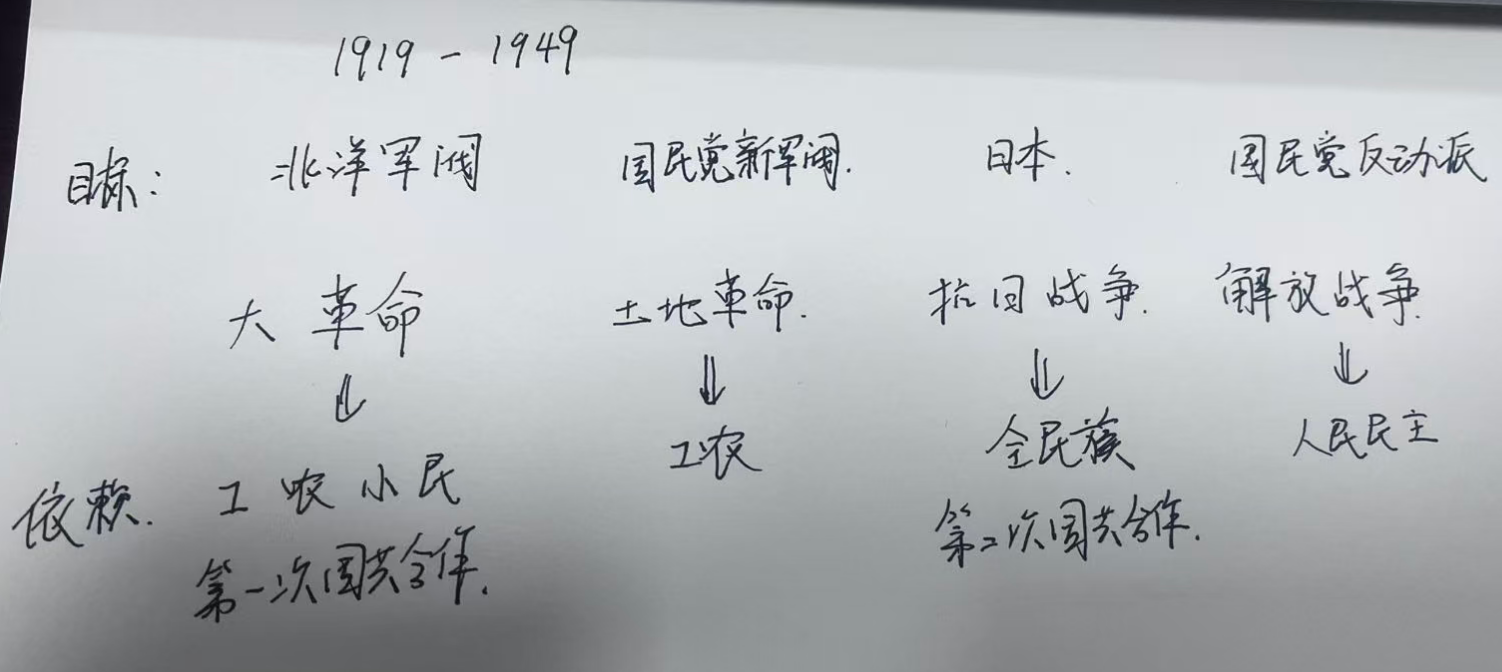 1919 - 1949
目标: 北洋军阀 国民党新军阀. 日本. 国民党反动派
大革命 土地革命. 抗日战争. 解放战争.
⇓ ⇓ ⇓ ⇓
工农 全民族 人民民主
依赖. 工农小民
第一次国共合作. 第二次国共合作.